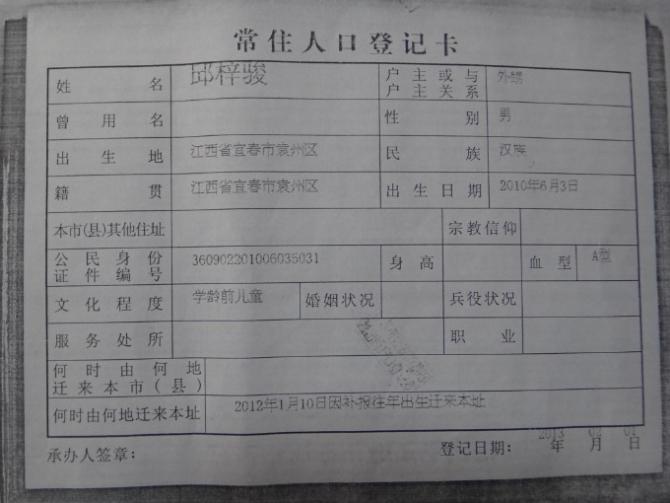 常住人口登记卡
姓名 邱梓骏 户主或与户主关系 外甥
曾用名 性别 男
出生地 江西省宜春市袁州区 民族 汉族
籍贯 江西省宜春市袁州区 出生日期 2010年6月3日
本市(县)其他住址 宗教信仰
公民身份证件编号 360902201006035031 身高 血型 A型
文化程度 学龄前儿童 婚姻状况 兵役状况
服务处所 职业
何时由何地迁来本市(县)
何时由何地迁来本址 2012年1月10日因补报往年出生迁来本址
承办人签章: 登记日期: 2013年02月01日